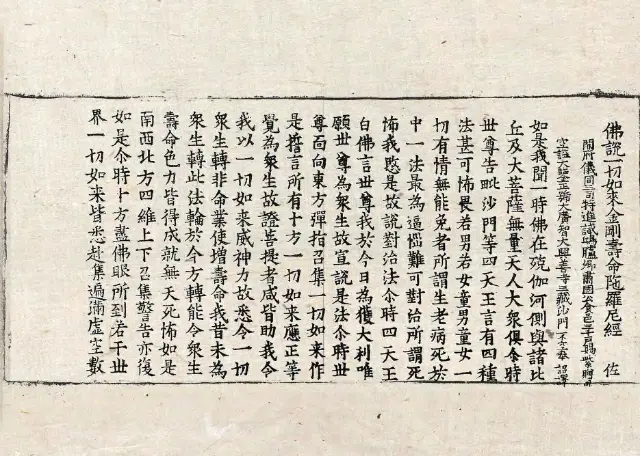 佛說一切如來金剛壽命陁羅尼經 佐
開府儀同三司特進試鴻臚卿肅國公食邑三千戶賜紫贈司
空謚大鑒正号大廣智大興善寺三藏沙門不空奉 詔譯
如是我聞一時佛在殑伽河側與諸比
丘及大菩薩無量天人大衆俱尒時
世尊告毗沙門等四天王言有四種
法甚可怖畏若男若女童男童女一
切有情無能免者所謂生老病死於
中一法最為逼惱難可對治所謂死
怖我愍是故說對治法尒時四天王
白佛言世尊我於今日為獲大利唯
願世尊為衆生故宣說是法尒時世
尊面向東方彈指召集一切如來作
是誓言所有十方一切如來應正等
覺為衆生故證菩提者咸皆助我令
我以一切如來威神力故悉令一切
衆生轉非命業使增壽命我昔未為
衆生轉此法輪於今方轉能令衆生
壽命色力皆得成就無夭死怖如是
南西北方四維上下召集警告亦復
如是尒時十方盡佛眼所到若干世
界一切如來皆悉赴集遍滿虛空數